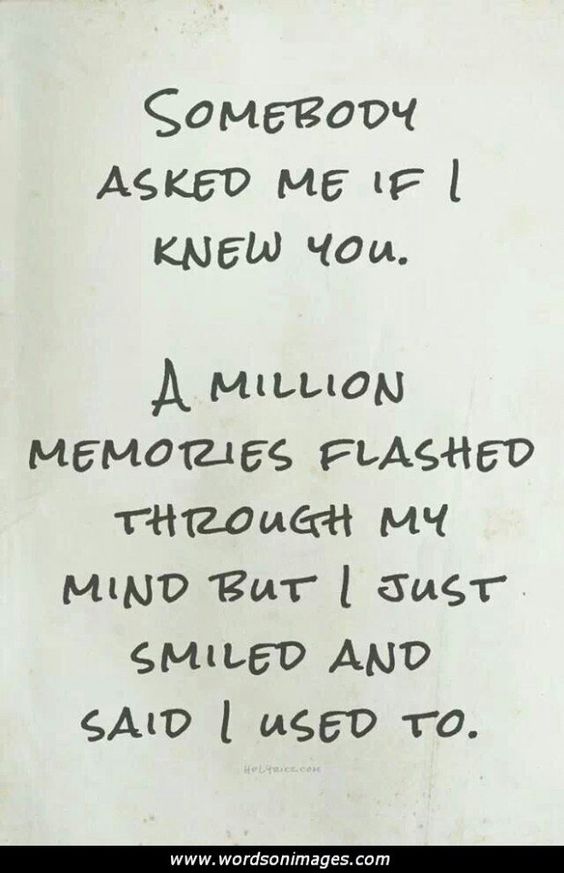 SOMEBODY
ASKED ME IF I
KNEW YOU.
A MILLION
MEMORIES FLASHED
THROUGH MY
MIND BUT I JUST
SMILED AND
SAID I USED TO.
www.wordsonimages.com